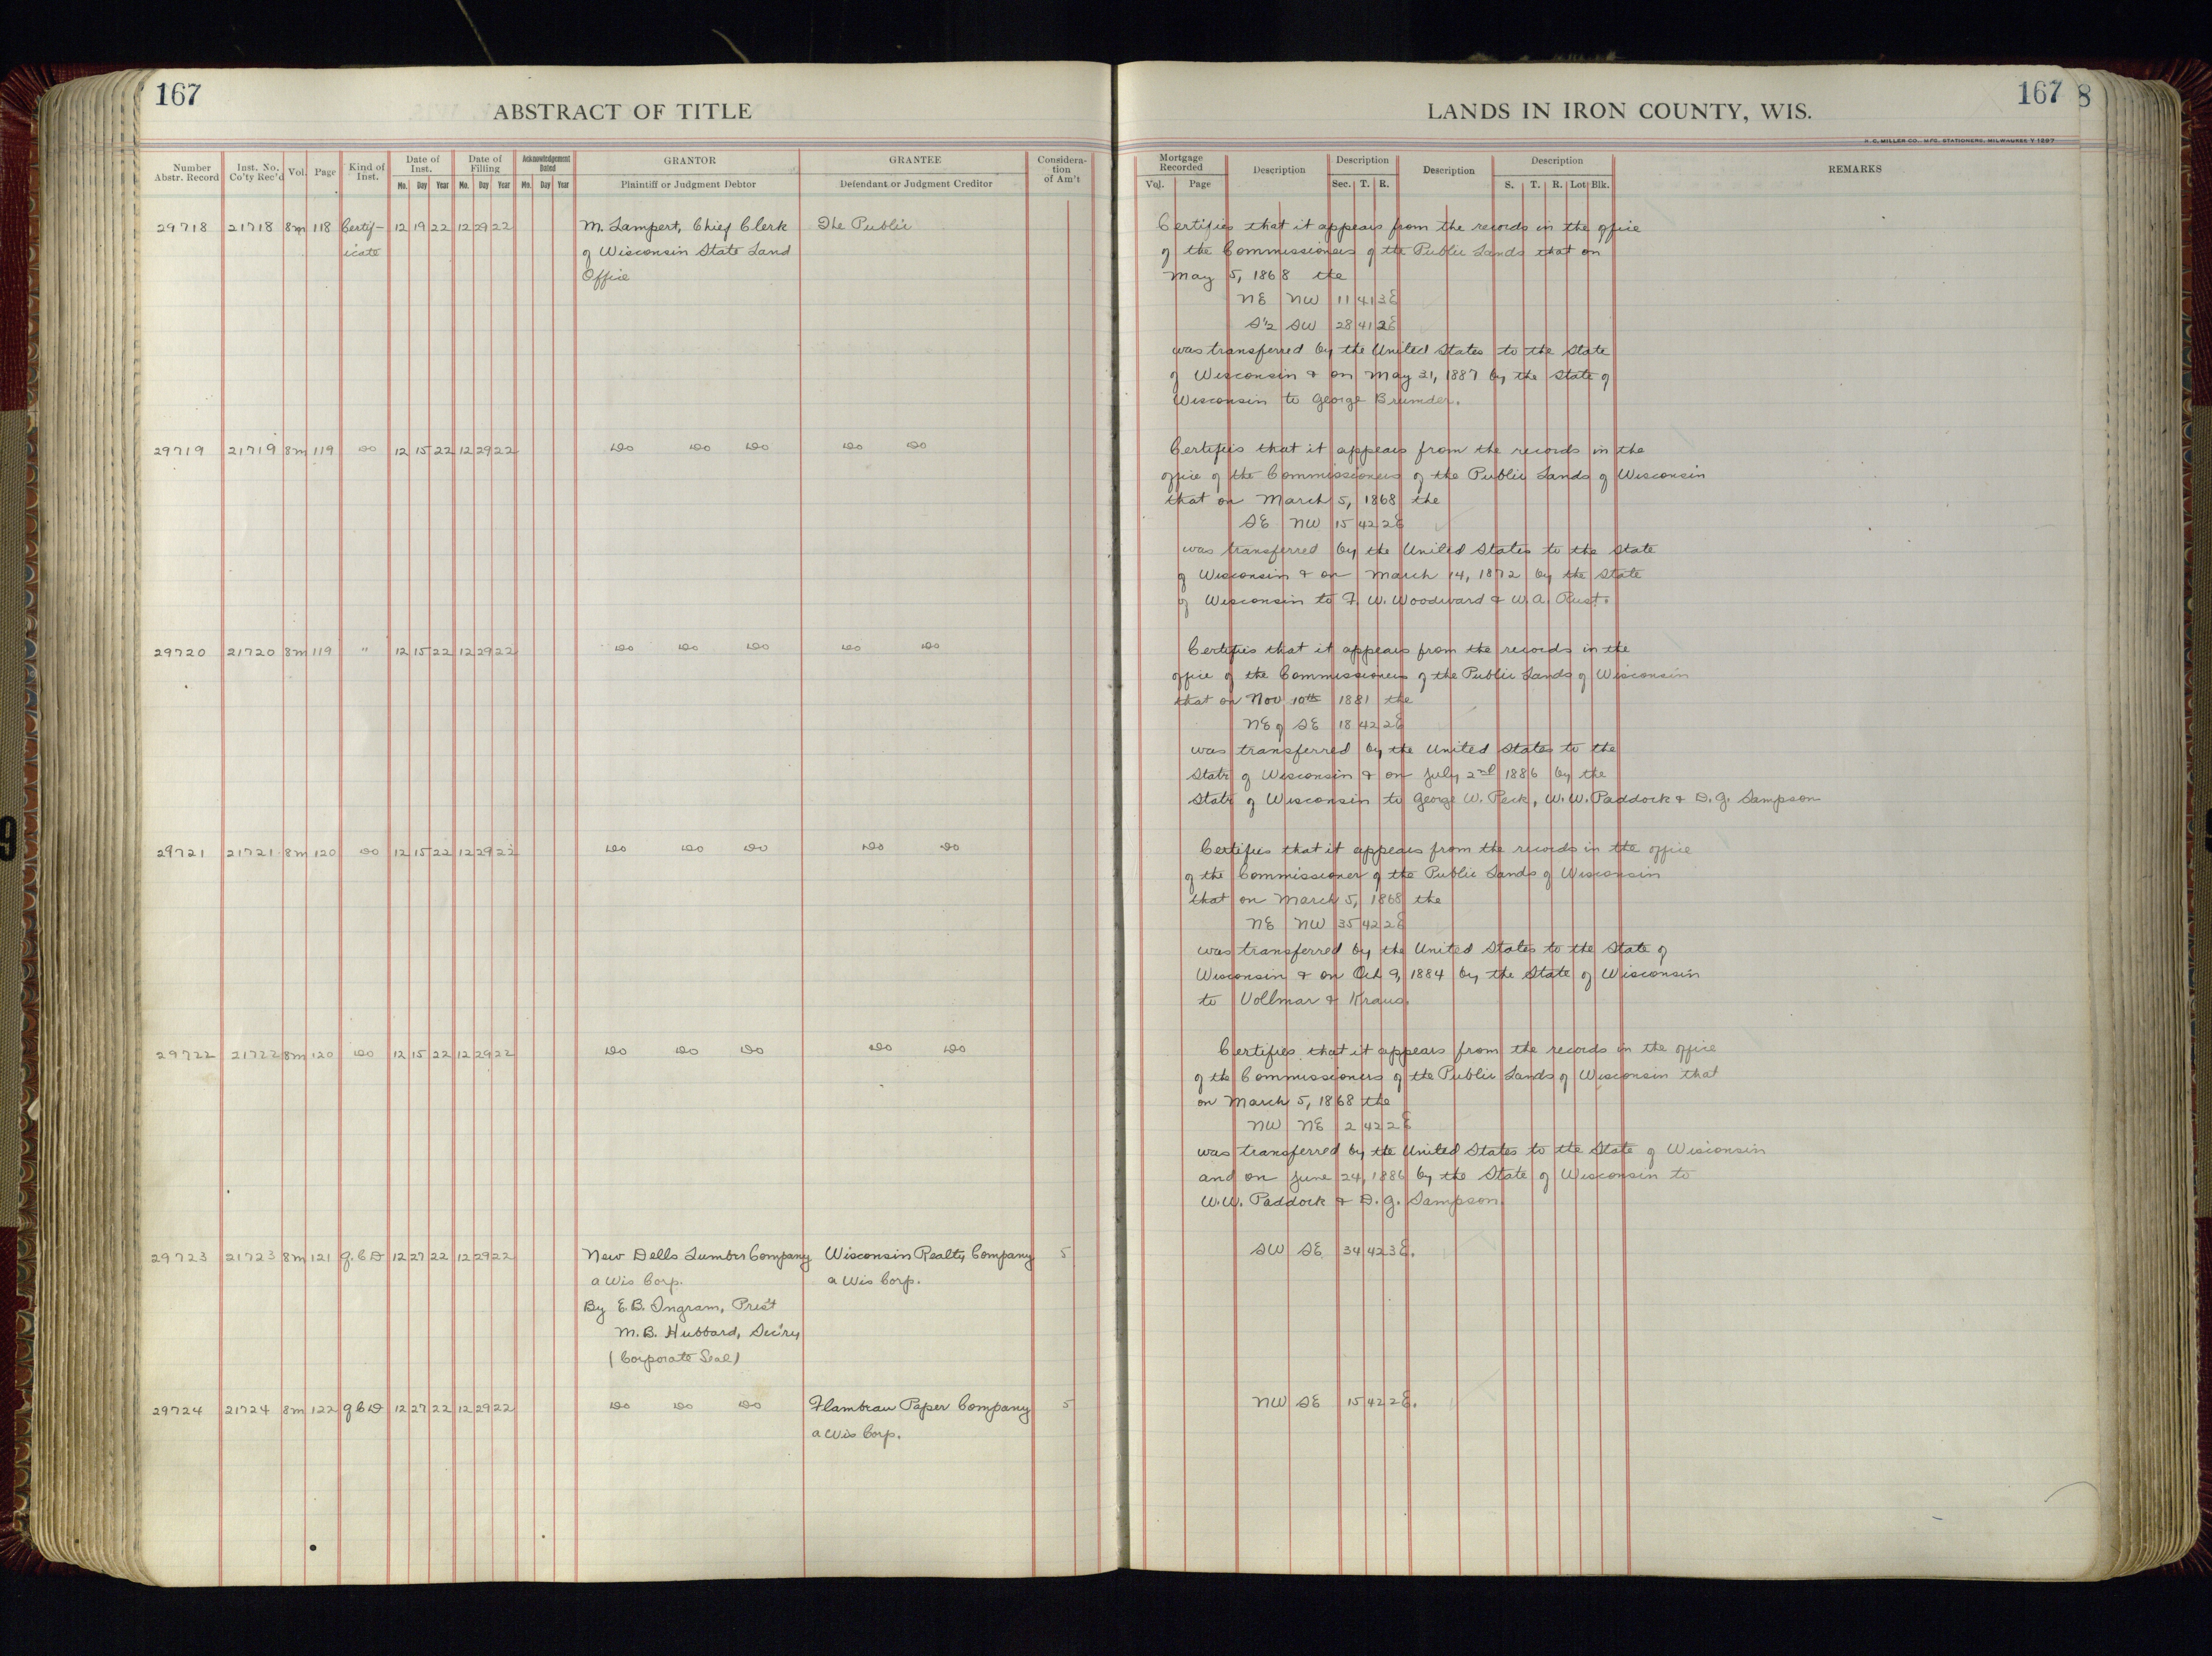 167
ABSTRACT OF TITLE
Number Abstr. Record
Inst. No. Co'ty Rec'd
Vol.
Page
Kind of Inst.
Date of Inst.
Mo. Day Year
Date of Filling
Mo. Day Year
Acknowledgement Dated
Mo. Day Year
GRANTOR
Plaintiff or Judgment Debtor
GRANTEE
Defendant or Judgment Creditor
Considera-tion of Am't
29718 21718 8m 118 Certif- 12 19 22 12 29 22 M. Lampert, Chief Clerk The Public
icate of Wisconsin State Land
Office
29719 21719 8m 119 Do 12 15 22 12 29 22 Do Do Do Do Do
29720 21720 8m 119 " 12 15 22 12 29 22 Do Do Do Do Do
29721 21721 8m 120 Do 12 15 22 12 29 22 Do Do Do Do Do
29722 21722 8m 120 Do 12 15 22 12 29 22 Do Do Do Do Do
29723 21723 8m 121 Q.C.D 12 27 22 12 29 22 New Dells Lumber Company Wisconsin Realty Company 5
a Wis Corp. a Wis Corp.
By E.B. Ingram, Pres't
M.B. Hubbard, Sec'ry
(Corporate Seal)
29724 21724 8m 122 Q C D 12 27 22 12 29 22 Do Do Do Flambeau Paper Company 5
a Wis Corp.
167 8
LANDS IN IRON COUNTY, WIS.
H. C. MILLER CO., MFG. STATIONERS, MILWAUKEE
Mortgage Recorded
Vol. Page
Description
Description
Sec. T. R.
Description
Description
S. T. R. Lot Blk.
REMARKS
Certifies that it appears from the records in the office
of the Commissioners of the Public Lands that on
May 5, 1868 the
NE NW 11 41 3E
S½ SW 28 41 2E
was transferred by the United States to the State
of Wisconsin & on May 21, 1887 by the State of
Wisconsin to George Brumder.
Certifies that it appears from the records in the
office of the Commissioners of the Public Lands of Wisconsin
that on March 5, 1868 the
SE NW 15 42 2E
was transferred by the United States to the State
of Wisconsin & on March 14, 1872 by the State
of Wisconsin to F. W. Woodward & W.A. Rust.
Certifies that it appears from the records in the
office of the Commissioners of the Public Lands of Wisconsin
that on Nov 10th 1881 the
NE of SE 18 42 2E
was transferred by the United States to the
State of Wisconsin & on July 2nd 1886 by the
State of Wisconsin to George W. Peck, W.W. Paddock & D.G. Sampson
Certifies that it appears from the records in the office
of the Commissioner of the Public Lands of Wisconsin
that on March 5, 1868 the
NE NW 35 42 2E
was transferred by the United States to the State of
Wisconsin & on Oct 9, 1884 by the State of Wisconsin
to Vollmar & Kraus.
Certifies that it appears from the records in the office
of the Commissioners of the Public Lands of Wisconsin that
on March 5, 1868 the
NW NE 2 42 2E
was transferred by the United States to the State of Wisconsin
and on June 24, 1886 by the State of Wisconsin to
W.W. Paddock & D.G. Sampson.
SW SE 34 42 3E.
NW SE 15 42 2E.